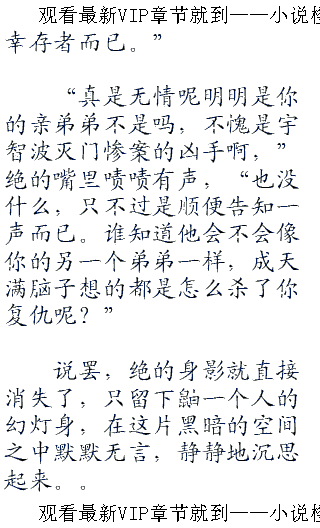 观看最新VIP章节就到——小说
幸存者而已。”
“真是无情呢明明是你
的亲弟弟不是吗，不愧是宇
智波灭门惨案的凶手啊，”
绝的嘴里啧啧有声，“也没
什么，只不过是顺便告知一
声而已。谁知道他会不会像
你的另一个弟弟一样，成天
满脑子想的都是怎么杀了你
复仇呢？”
说罢，绝的身影就直接
消失了，只留下鼬一个人的
幻灯身，在这片黑暗的空间
之中默默无言，静静地沉思
起来。。
观看最新VIP章节就到——小说